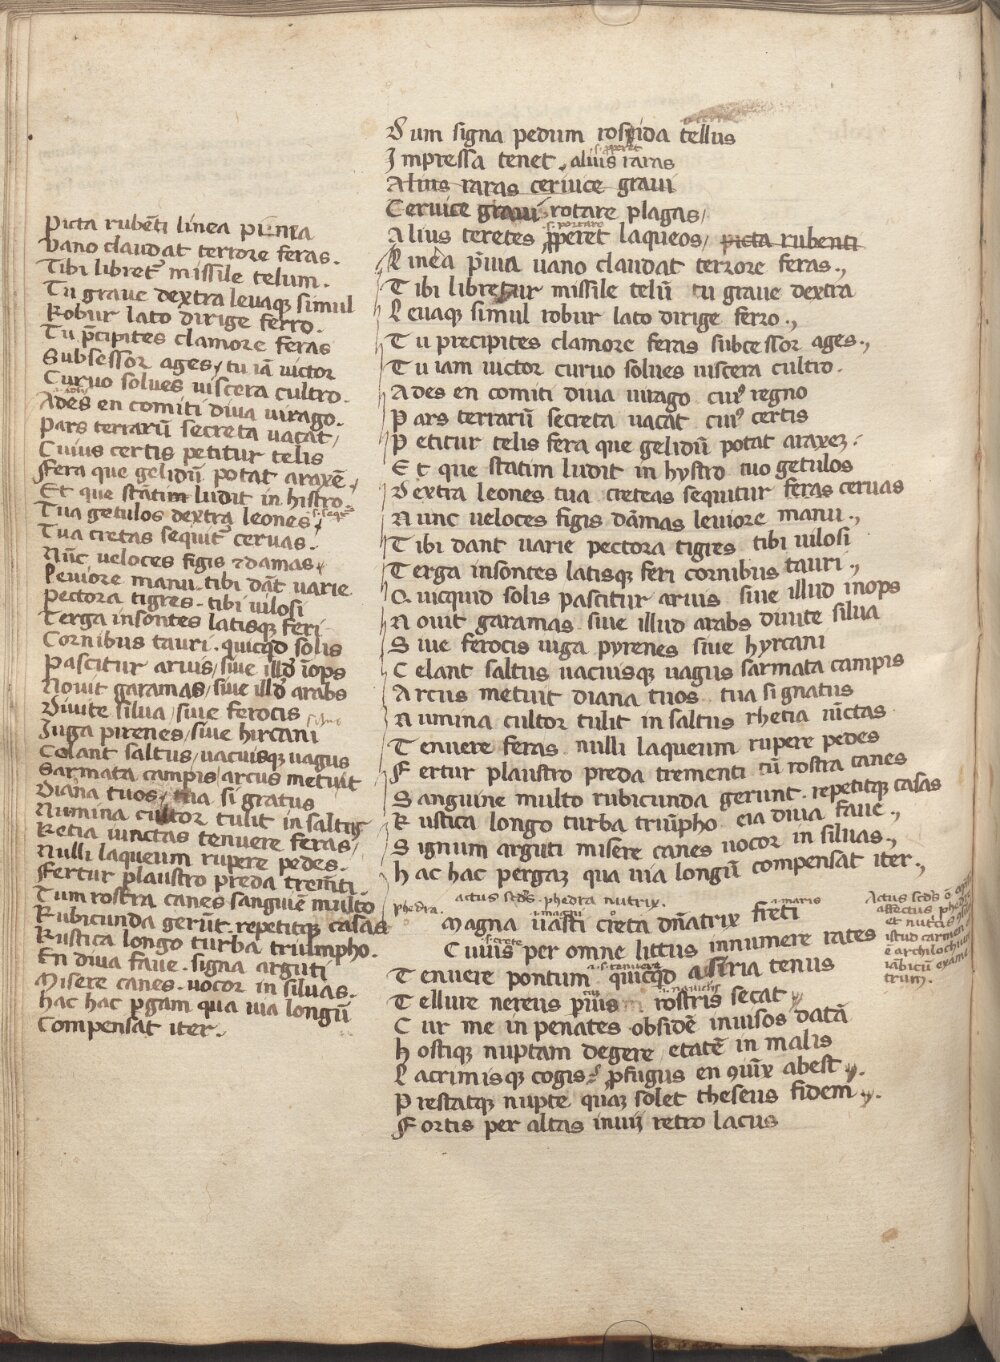 Dum signa pedum roscida tellus
Impressa tenet. alius raras
Alius raras cervice gravi
Cervice gravi rotare plagas/
Alius teretes ꝓperet laqueos/ picta rubenti
Linea p̄nia uano claudat terrore feras.,
Tibi libretur missile telū tu graue dextra
Leuaqꝫ simul robur lato dirige ferro.,
Tu precipites clamore feras subcessor ages.,
Tu iam uictor curuo solues uiscera cultro.
Ades en comiti diua uirago cuiꝰ regno
Pars terrarū secreta uacat cuiꝰ certis
Petitur telis fera que gelidū potat araxeꝫ.
Et que statim ludit in hystro tuo getulos
Dextra leones tua creteas sequitur feras ceruas
Nunc ueloces figis dāmas leuiore manu.,
Tibi dant uarie pectora tigres tibi uilosi
Terga insontes latisqꝫ feri cornibus tauri.,
Quicquid solis pascitur aruis siue illud inops
Nouit garamas siue illud arabs diuite silua
Siue ferocis iuga pyrenes siue hyrcani
Celant saltus uacuisqꝫ uagus sarmata campis
Arcus metuit diana tuos tua si gnatus
Numina cultor tulit in saltus rhetia uīctas
Tenuere feras nulli laqueum rupere pedes
Fertur plaustro preda trementi tū rostra canes
Sanguine multo rubicunda gerunt. repetitqꝫ casas
Rustica longo turba triūpho eia diua faue.,
Signum arguti misere canes uocor in siluas.,
hac hac pergaꝫ qua uia longū compensat iter.,
Picta rubēti linea pinna
Vano claudat terrore feras.
Tibi libret᷑ missile telum.
Tu graue dextra leuaqꝫ simul
Robur lato dirige ferro.
Tu p̄cipites clamore feras
Subsessor ages/ tu iā uictor
Curuo solues uiscera cultro.
Ades en comiti diua uirago.
Pars terrarū secreta uacat/
Cuius certis petitur telis
Fera que gelidū potat araxē.
Et que statim ludit in histro
Tua getulos dextra leones
Tua cretas sequit᷑ ceruas.
Nūc ueloces figis damas
Leuiore manu. tibi dāt uarie
Pectora tigres. tibi uilosi
Terga insontes latisqꝫ feri
Cornibus tauri. quicqd̄ solis
Pascitur aruis/ siue illd̄ īops
Nouit garamas/ siue illd̄ arabs
Diuite silua/ siue ferocis
Iuga pirenes/ siue hircani
Celant saltus/ uacuisqꝫ uagus
Sarmata campis/ arcus metuit
Diana tuos/ tua si gratus
Numina cultor tulit in saltus
Retia uinctas tenuere feras/
Nulli laqueum rupere pedes.
Fertur plaustro preda tremēti.
Tum rostra canes sanguiē multo
Rubicunda gerūt. repetitqꝫ casas
Rustica longo turba triumpho.
En diua faue. signa arguti
Misere canes. uocor in siluas.
hac hac ꝑgam qua uia longū
Compensat iter.
actus scd̄s. phedra nutrix.
phedra.
Magna uasti creta dn̄atrix freti
Cuius per omne littus innumere rates
Tenuere pontum quicqd̄ assiria tenus
Tellure nereus ꝑuius rostris secat
Cur me in penates obsidē inuisos datā
hostiqꝫ nuptam degere etatē in malis
Lacrimisqꝫ cogis ꝓfugus en ꝯiūx abest
Prestatqꝫ nupte quaꝫ solet theseus fidem.
Fortis per altas inuij retro lacus
Actus scd̄s
affectus phedre
et nutricis
istud carmen
ē archilochium
iābicū
trum.